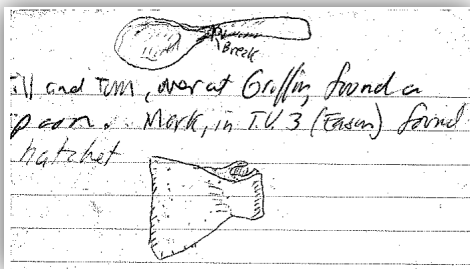 Break
ill and Tom, over at Griffin, found a
poon. Mark, in T.U. 3 (Eason) found
hatchet